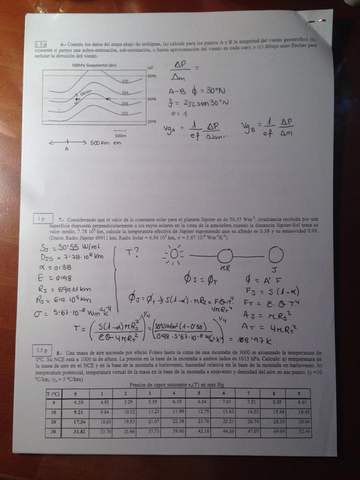 6.- Usando los datos del mapa abajo de isohipsas, (a) calcule para los puntos A y B la magnitud del viento geostrófico, (b)
comente si parece una sobre-estimación, sub-estimación, o buena aproximación del viento en cada caso, y (c) dibuje unas flechas para
señalar la dirección del viento.
500hPa Geopotential (dm)
LAT
60ºN
30ºN
500km
A
500 km en
ΔP
Δm =
A-B φ = 30ºN
f = 2Ω sen 30ºN
e = 1
Vg_A = 1/ef ΔP/Δm
Vg_B = 1/ef ΔP/Δm
7.- Considerando que el valor de la constante solar para el planeta Júpiter es de 50.55 Wm⁻², irradiancia recibida por una
superficie dispuesta perpendicularmente a los rayos solares en la cima de la atmósfera cuando la distancia Júpiter-Sol toma su
valor medio, 7.78 10⁸ km, calcule la temperatura efectiva de Júpiter suponiendo que su albedo es 0.58 y su emisividad 0.98.
(Datos: Radio Júpiter 69911 km; Radio Solar = 6.96 10⁵ km, σ = 5.67 10⁻⁸ Wm⁻²K⁻⁴).
S = 50'55 W/m²
D = 7'78·10⁸ km
α = 0'58
E = 0'98
R_J = 69911 km
R_S = 6'9·10⁵ km
σ = 5'67·10⁻⁸ W m⁻² K⁻⁴
T?
S
J
πR²
φ_J = φ_T
φ = A·F
F_J = S(1-α)
F_T = E σ T⁴
A_J = πR_J²
A_T = 4πR_J²
φ_J = φ_T → S(1-α)·πR_J² = E σ T⁴ 4πR_J²
T = (S(1-α)πR_J² / E σ 4πR_J²)^1/4 = (50'55 (1-0'58) / 0'98·5'67·10⁻⁸·4)^1/4 = 98'97 K
8.- Una masa de aire asciende por efecto Föhen hasta la cima de una montaña de 3000 m alcanzando la temperatura de
0ºC. Su NCE está a 1000 m de altura. La presión en la base de la montaña a ambos lados es 1013 hPa. Calcule: a) temperatura de
la masa de aire en el NCE y en la base de la montaña a barlovento, humedad relativa en la base de la montaña en barlovento; b)
temperatura potencial, temperatura virtual de la masa en la base de la montaña a sotavento y densidad del aire en ese punto. (γ =10
ºC/km, γ = 5 ºC/km)
Presión de vapor saturante e(T) en mm Hg
T (ºC) 0 1 2 3 4 5 6 7 8 9
0 4.58 4.93 5.29 5.69 6.10 6.54 7.01 7.51 8.05 8.61
10 9.21 9.84 10.52 11.23 11.99 12.79 13.63 14.53 15.48 16.48
20 17.54 18.65 19.83 21.07 22.38 23.76 25.21 26.74 28.35 30.04
30 31.82 33.70 35.66 37.73 39.90 42.18 44.56 47.07 49.69 52.44